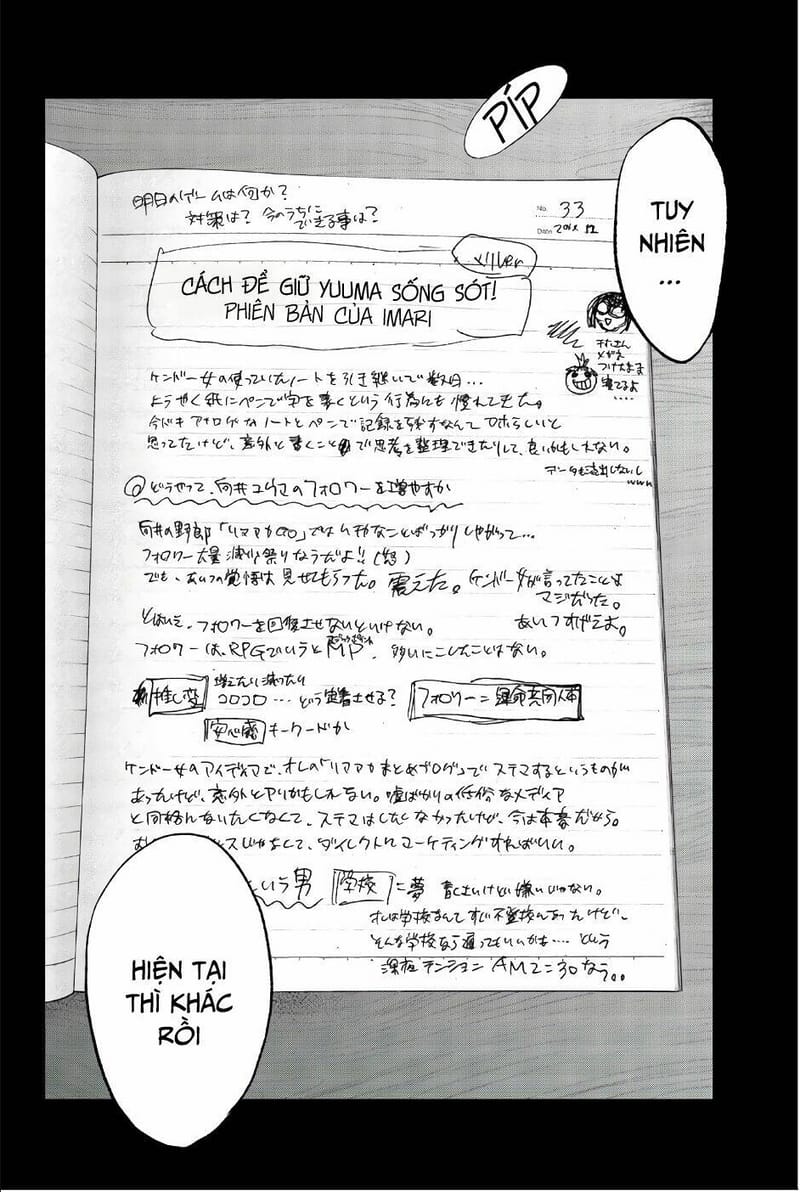 PÍP
TUY
NHIÊN
...
明日のゲームは何か?
対策は? 今のうちに
できる事は?
No. 33
Date 201X 12
CÁCH ĐỂ GIỮ YUUMA SỐNG SÓT!
PHIÊN BẢN CỦA IMARI
メガネ
つけたまま
寝てるよ
....
ケンドー女の使っていたノートを引き継いで数日...
ようやく紙にペンで字を書くという行為にも慣れてきた。
今どきアナログなノートとペンで記録を残すなんてダサらしいと
思ってたけど、意外と書くことで思考を整理できたりして、良いかもしれない。
データも流出しないし
www
◎どうやって、向井ユウマのフォロワーを増やすか
向井の野郎「リアアカGO」ではムチャなことばっかりしやがって...
フォロワー大量減少祭りなうだよ!!(怒)
でも、あいつの覚悟は見せてもらった。震えた。ケンドー女が言ってたことは
マジだった。
あいつすげえよ。
とはいえ、フォロワーを回復させないといけない。
フォロワーは、RPGでいうとMP、多いにこしたことはない。
推し変
増えたり減ったり
コロコロ...どう定着させる?
フォロワー=運命共同体
安心感 キーワードか
ケンドー女のアイディアで、オレの「リアアカまとめブログ」でステマするというものが
あったけど、意外とアリかもしれない。嘘ばかりの低俗なメディア
と同格になりたくなくて、ステマはしたくなかったけど、今は本番だから。
スじゃなくて、ダイレクトにマーケティングすればいい。
という男 学校=夢 青くさいけど嫌いじゃない。
オレは学校なんてすぐ不登校になったけど、
そんな学校なら通ってもいいかも....という
深夜テンション AM2:30なう。。
HIỆN TẠI
THÌ KHÁC
RỒI